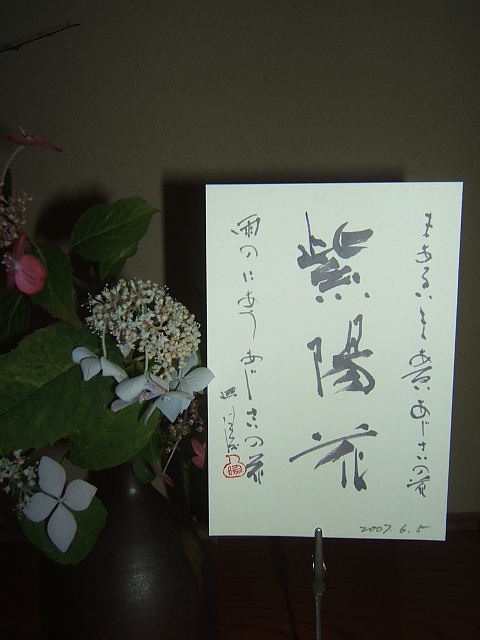 まあるい あじさいの花
紫陽花
雨のにあう あじさいの花
2007.6.5